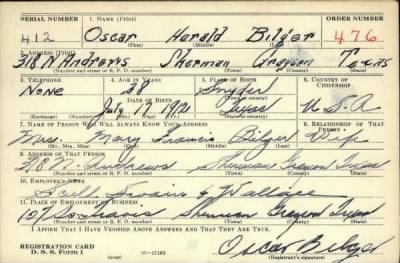 SERIAL NUMBER 1. NAME (Print) ORDER NUMBER
412 Oscar Harald Bilger 476
(First) (Middle) (Last)
2. ADDRESS (Print)
318 N Andrews Sherman Grayson Texas
(Number and street or R. F. D. number) (Town) (County) (State)
3. TELEPHONE 4. AGE IN YEARS 5. PLACE OF BIRTH 6. COUNTRY OF CITIZENSHIP
None 38 Snyder
DATE OF BIRTH (Town or county)
July 17 Texas U.S.A
(Exchange) (Number) (Mo.) (Day) (Yr.) (State or country)
7. NAME OF PERSON WHO WILL ALWAYS KNOW YOUR ADDRESS 8. RELATIONSHIP OF THAT PERSON
Mrs. Mary Francis Bilger Wife
(Mr., Mrs., Miss) (First) (Middle) (Last)
9. ADDRESS OF THAT PERSON
318 N. Andrews Sherman Grayson Texas
(Number and street or R. F. D. number) (Town) (County) (State)
10. EMPLOYER'S NAME
Swains & Wallace
11. PLACE OF EMPLOYMENT OR BUSINESS
107 Travis Sherman Grayson Texas
(Number and street or R. F. D. number) (Town) (County) (State)
I AFFIRM THAT I HAVE VERIFIED ABOVE ANSWERS AND THAT THEY ARE TRUE.
REGISTRATION CARD
D. S. S. Form 1 (over) 16—17105 Oscar Bilger
(Registrant's signature)